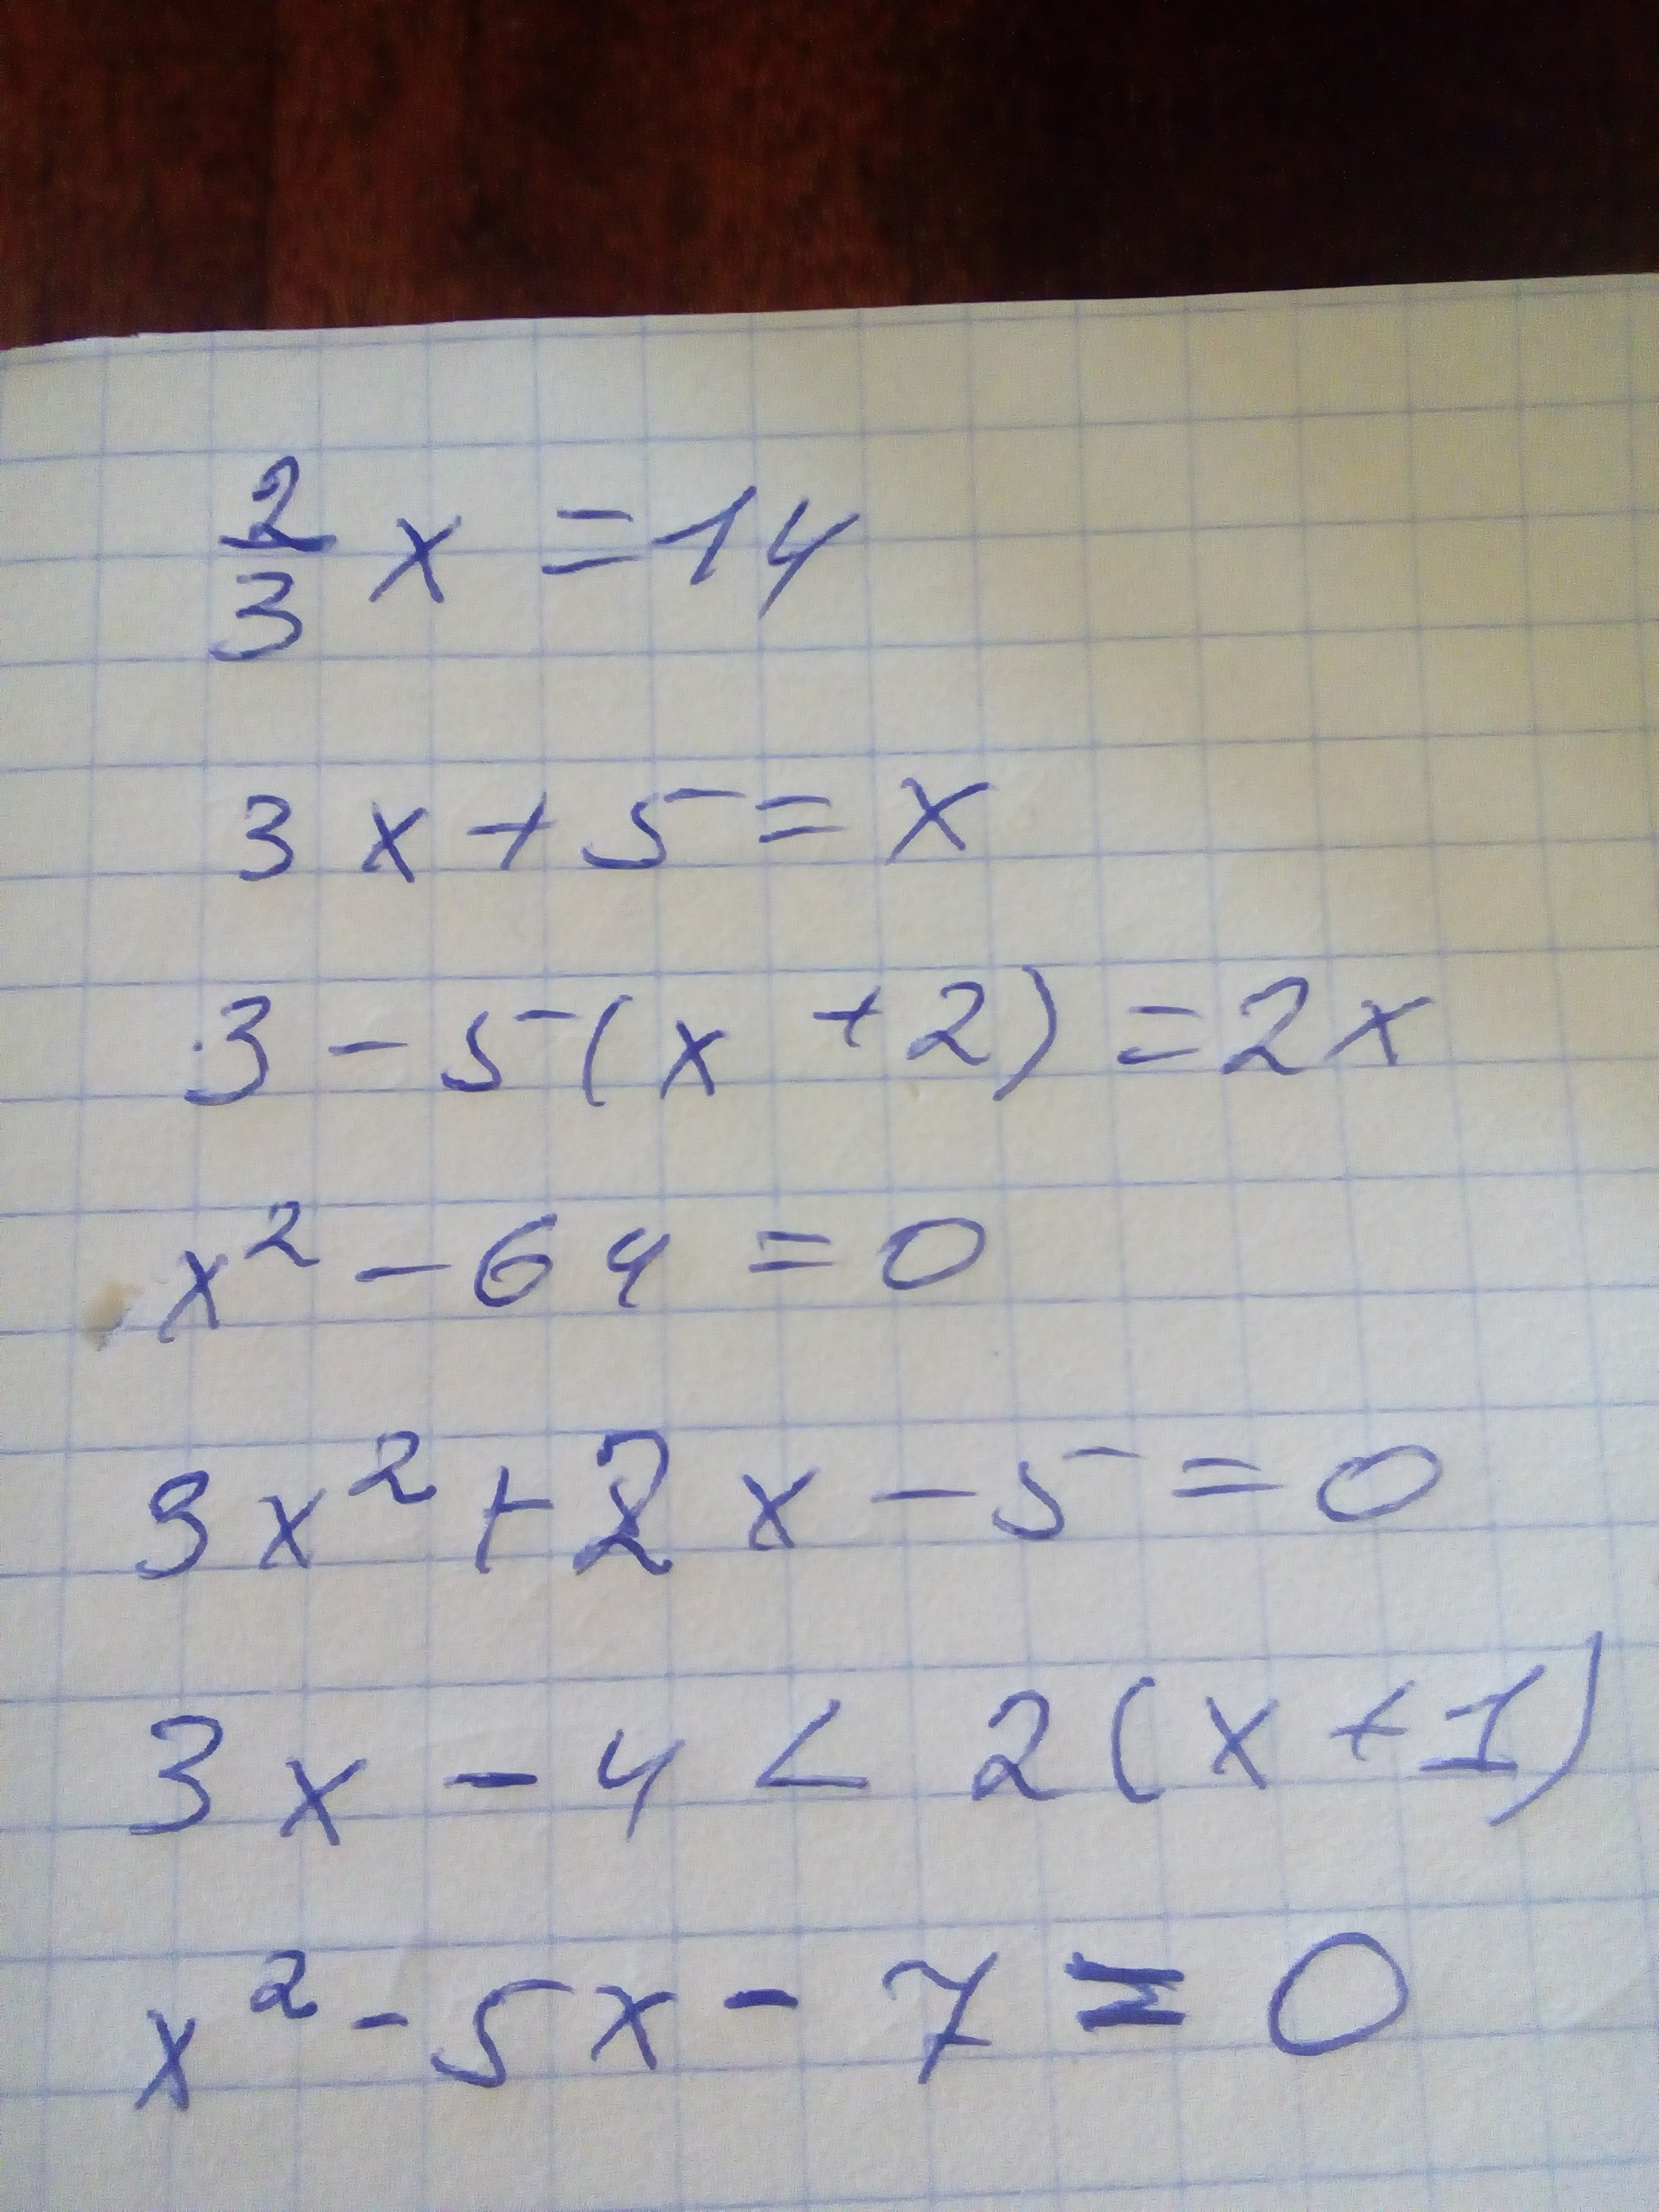 2/3 x = 14
3x + 5 = x
3 - 5(x + 2) = 2x
x² - 64 = 0
3x² + 2x - 5 = 0
3x - 4 < 2(x + 1)
x² - 5x - 7 = 0